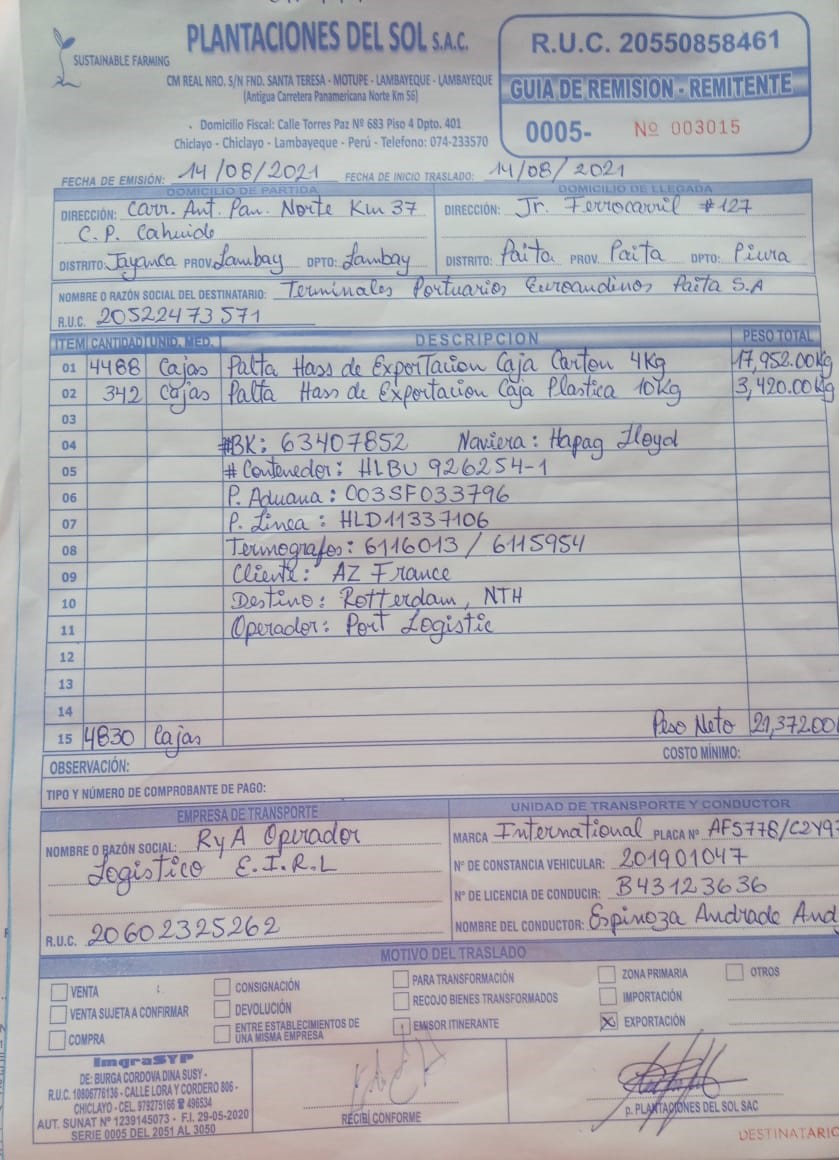 PLANTACIONES DEL SOL S.A.C.
SUSTAINABLE FARMING
CM REAL NRO. S/N FND. SANTA TERESA - MOTUPE - LAMBAYEQUE - LAMBAYEQUE
(Antigua Carretera Panamericana Norte Km 56)
Domicilio Fiscal: Calle Torres Paz Nº 683 Piso 4 Dpto. 401
Chiclayo - Chiclayo - Lambayeque - Perú - Telefono: 074-233570
R.U.C. 20550858461
GUIA DE REMISIÓN - REMITENTE
0005- Nº 003015
FECHA DE EMISIÓN: 14/08/2021 FECHA DE INICIO TRASLADO: 14/08/2021
DOMICILIO DE PARTIDA DOMICILIO DE LLEGADA
DIRECCIÓN: Carr. Ant. Pan. Norte Km 37 DIRECCIÓN: Jr. Ferrocarril #127
C.P. Cahuide
DISTRITO: Jayanca PROV. Lambay DPTO: Lambay DISTRITO: Paita PROV. Paita DPTO: Piura
NOMBRE O RAZÓN SOCIAL DEL DESTINATARIO: Terminales Portuarios Euroandinos Paita S.A
R.U.C. 20522473571
ITEM CANTIDAD UNID. MED. DESCRIPCION PESO TOTAL
01 4488 Cajas Palta Hass de Exportacion Caja Carton 4Kg 17,952.00Kg
02 342 Cajas Palta Hass de Exportacion Caja Plastica 10Kg 3,420.00Kg
03
04 #BK: 63407852 Naviera: Hapag Lloyd
05 # Contenedor: HLBU 926254-1
06 P. Aduana: 003SF033796
07 P. Linea: HLD11337106
08 Termografos: 6116013 / 6115954
09 Cliente: AZ France
10 Destino: Rotterdam, NTH
11 Operador: Port Logistic
12
13
14
15 4830 Cajas Peso Neto 21,372.00
COSTO MÍNIMO:
OBSERVACIÓN:
TIPO Y NÚMERO DE COMPROBANTE DE PAGO:
EMPRESA DE TRANSPORTE UNIDAD DE TRANSPORTE Y CONDUCTOR
NOMBRE O RAZÓN SOCIAL: RyA Operador
Logistico E.I.R.L
R.U.C. 20602325262
MARCA International PLACA Nº AFS778/C2Y97
Nº DE CONSTANCIA VEHICULAR: 201901047
Nº DE LICENCIA DE CONDUCIR: B43123636
NOMBRE DEL CONDUCTOR: Espinoza Andrade And
MOTIVO DEL TRASLADO
VENTA CONSIGNACIÓN PARA TRANSFORMACIÓN ZONA PRIMARIA OTROS
VENTA SUJETA A CONFIRMAR DEVOLUCIÓN RECOJO BIENES TRANSFORMADOS IMPORTACIÓN
COMPRA ENTRE ESTABLECIMIENTOS DE UNA MISMA EMPRESA EMISOR ITINERANTE EXPORTACIÓN
ImgraSYP
DE: BURGA CORDOVA DINA SUSY -
R.U.C. 10806776136 - CALLE LORA Y CORDERO 806 -
CHICLAYO - CEL. 979275166 ☎ 496534
AUT. SUNAT Nº 1239145073 - F.I. 29-05-2020
SERIE 0005 DEL 2051 AL 3050
RECIBI CONFORME
p. PLANTACIONES DEL SOL SAC
DESTINATARIO